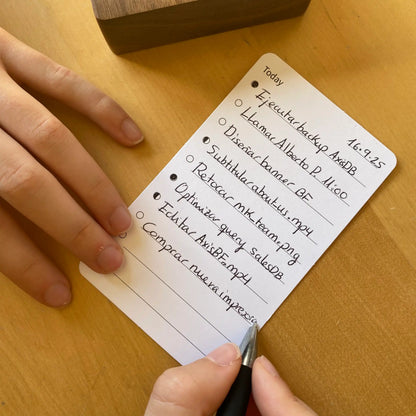 Today
16.9.25
Ejecutar backup AxisDB
Llamar Alberto P. 11:00
Diseñar banner BF
Subtitular aboutus.mp4
Retocar mkteam.png
Optimizar query salesDB
Editar AxisBF.mp4
Comprar nueva impresora